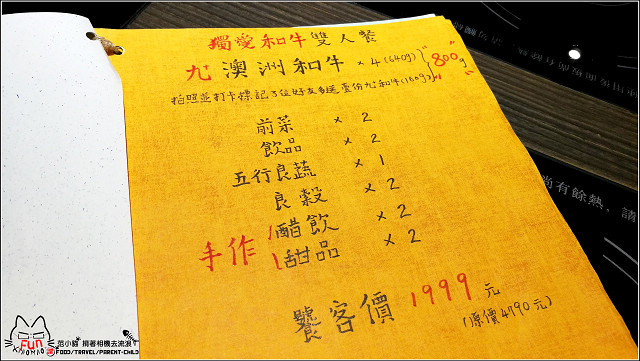 獨愛和牛雙人餐
九+ 澳洲和牛 x 4 (640g)
拍照並打卡標記3位好友多送壹份九+和牛(160g)
"800g"
前菜 x 2
飲品 x 2
五行良蔬 x 1
良穀 x 2
手作 醋飲 x 2
甜品 x 2
饕客價 1999 元
(原價4790元)
尚有餘熱、請
Fun
范小貓 揹著相機去流浪
FOOD/TRAVEL/PARENT-CHILD